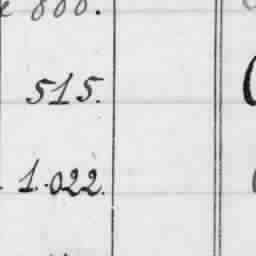 800.
515.
1.022.